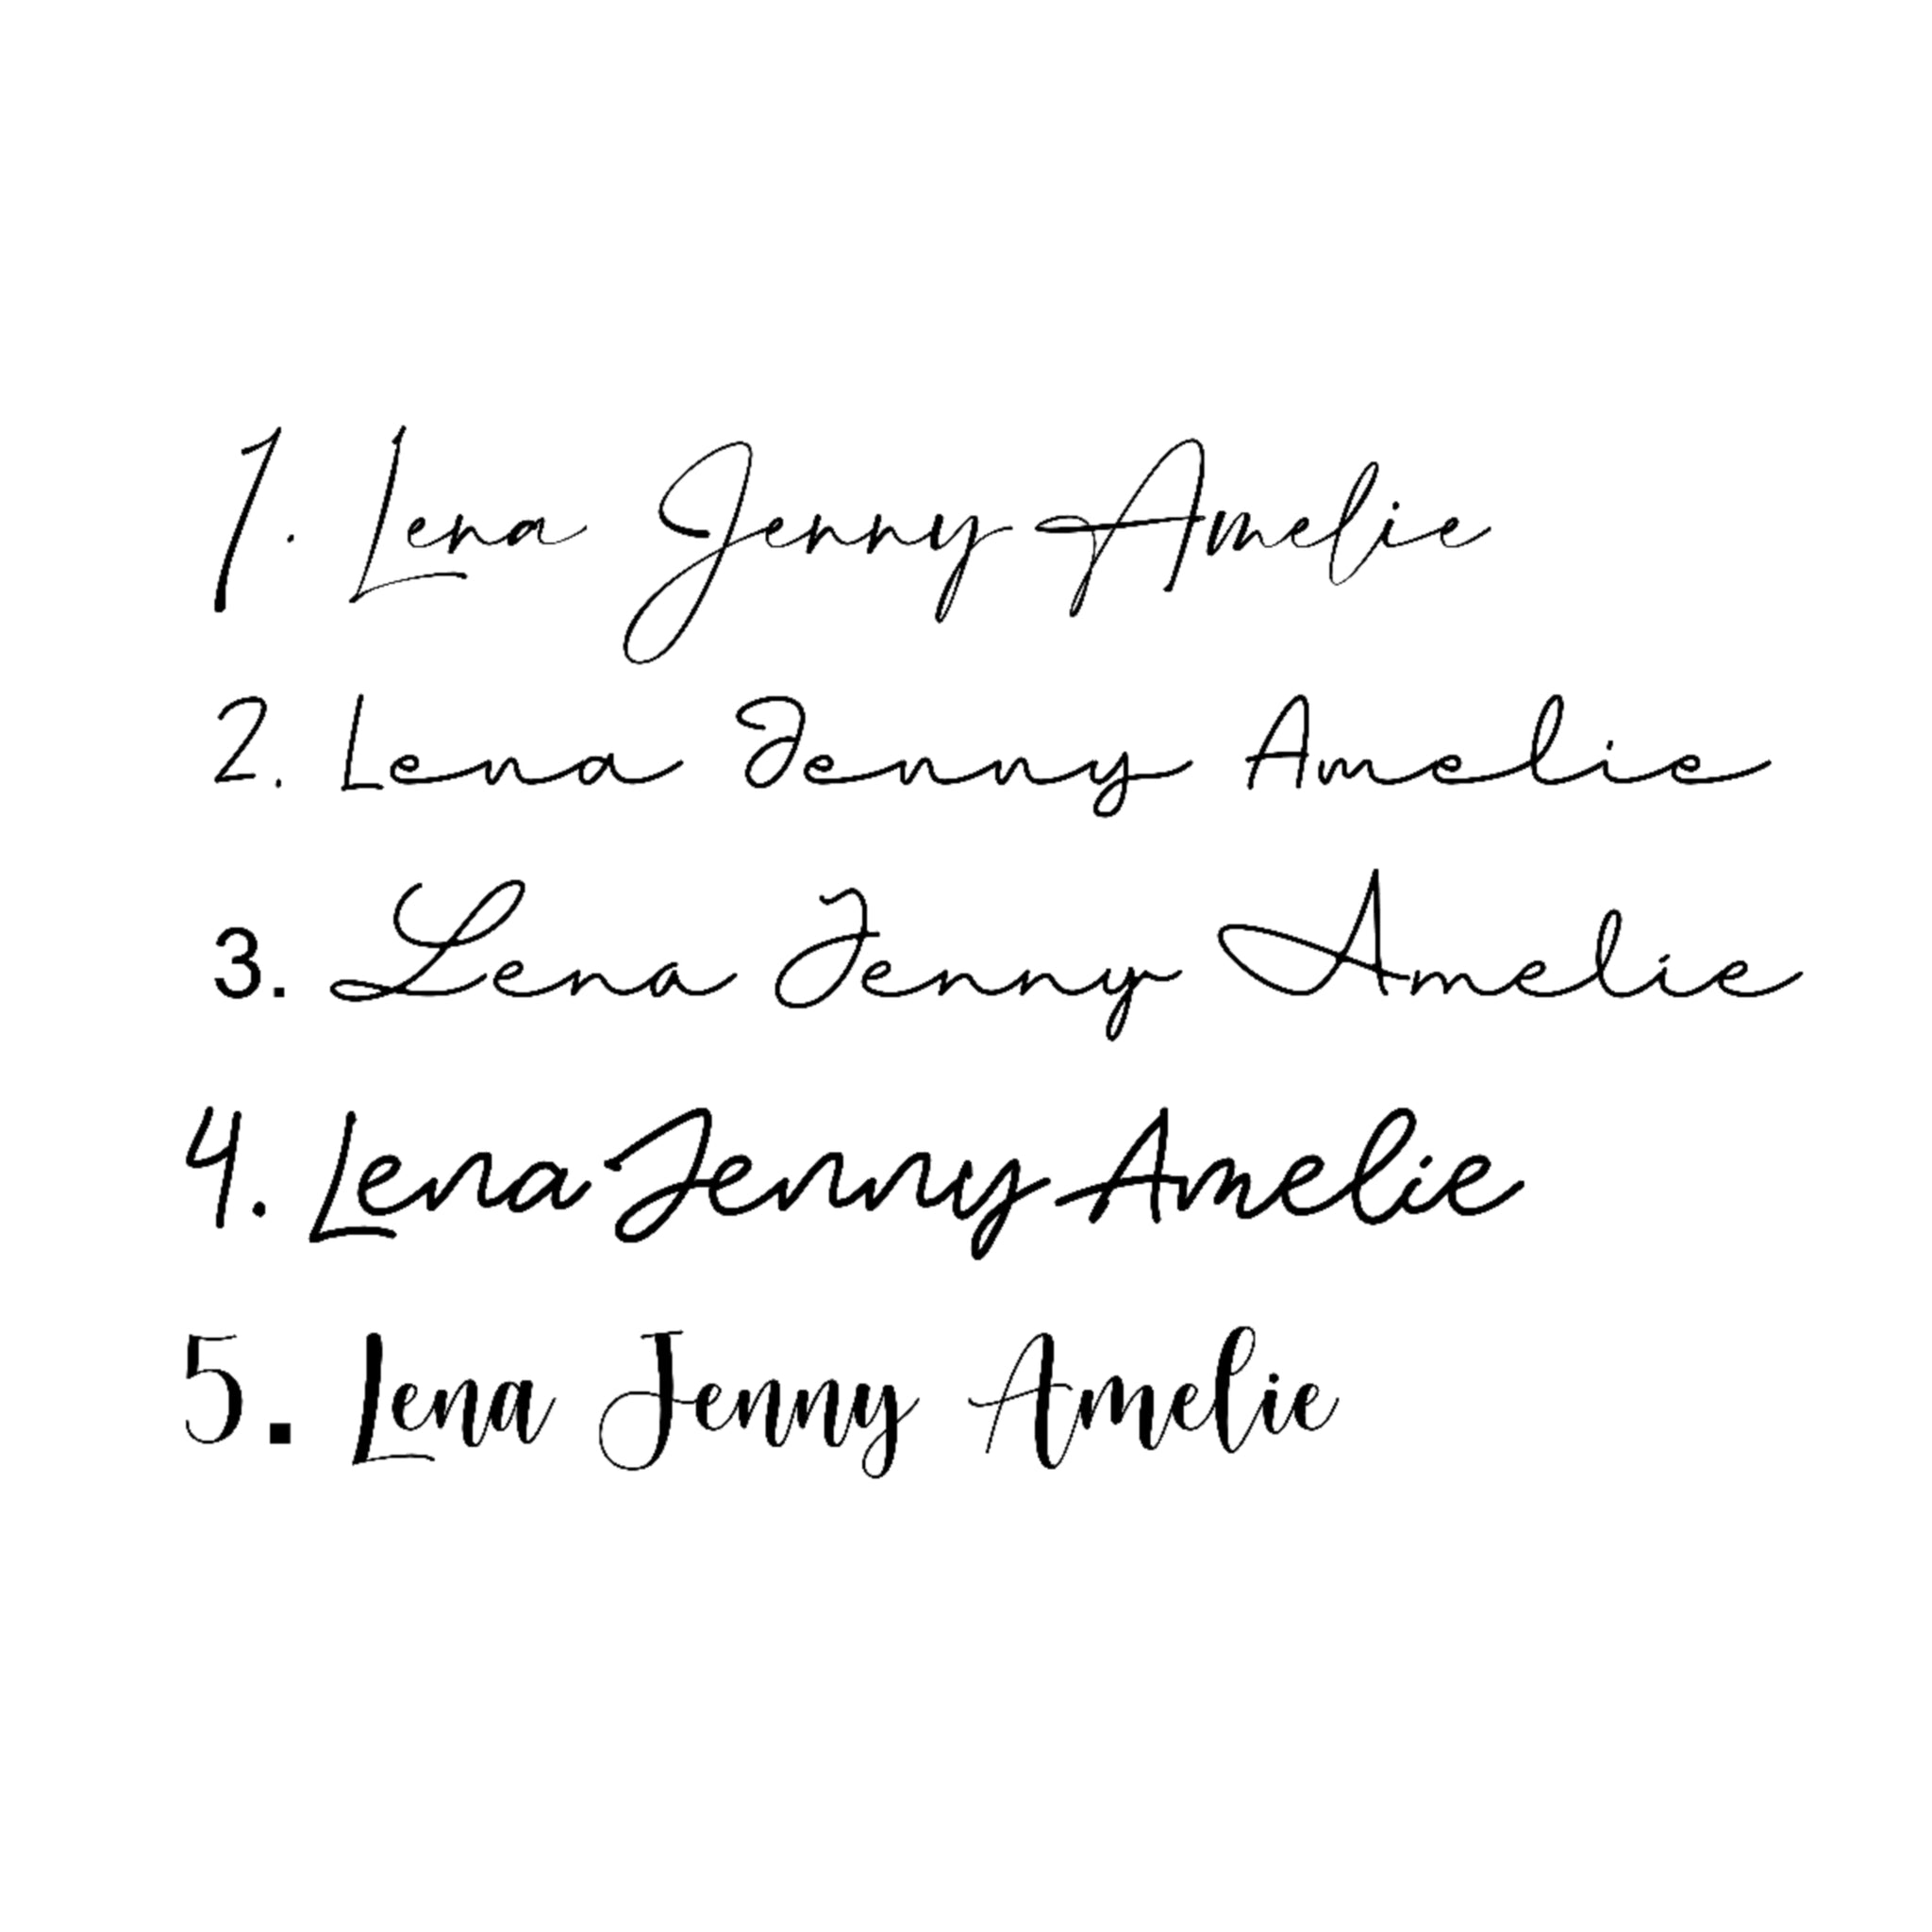 1. Lena Jenny Amelie
2. Lena Jenny Amelie
3. Lena Jenny Amelie
4. Lena Jenny Amelie
5. Lena Jenny Amelie